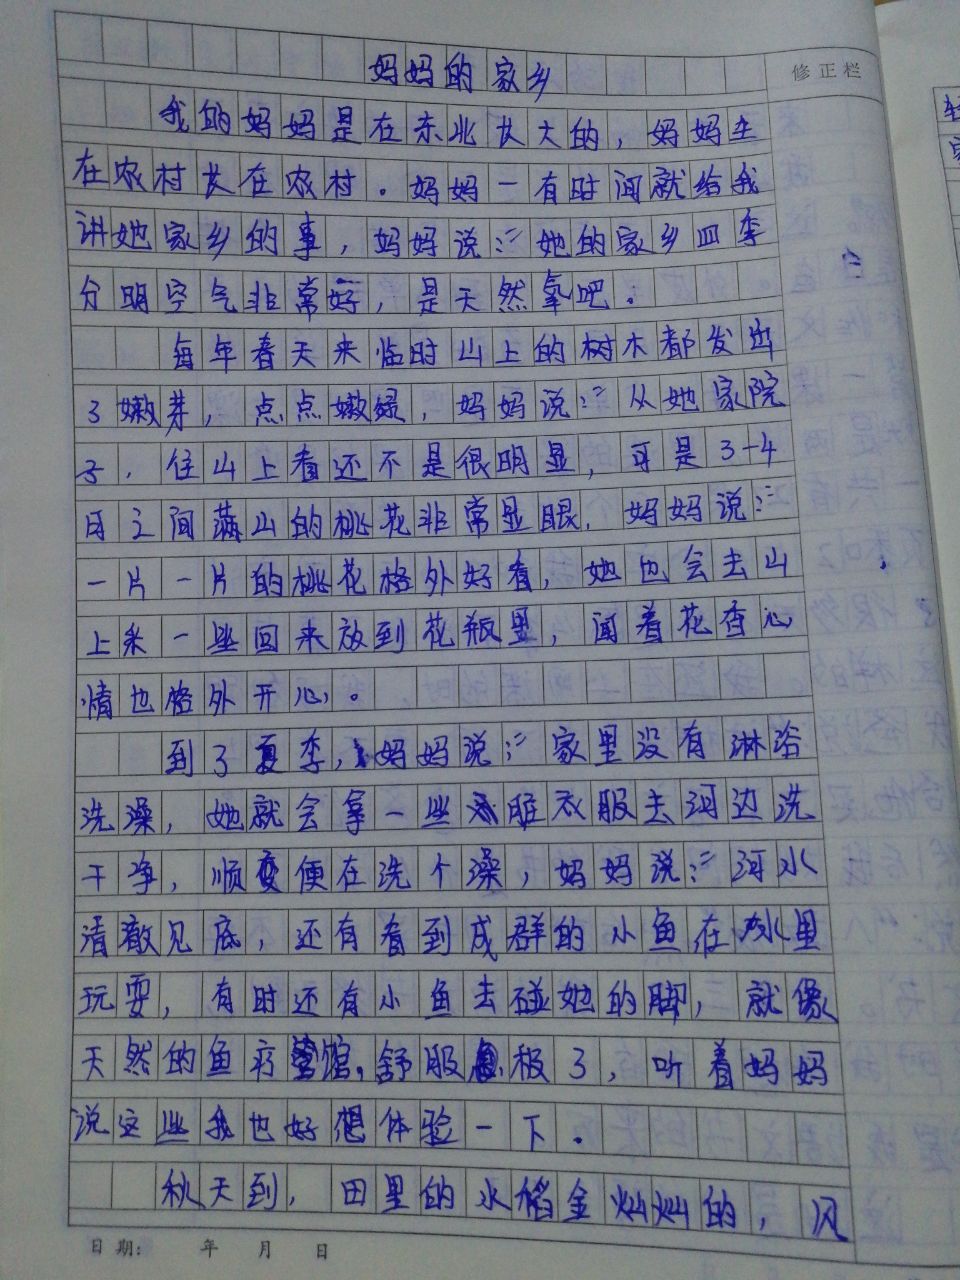 妈妈的家乡
修正栏
我的妈妈是在东北长大的，妈妈生
在农村长在农村．妈妈一有时间就给我
讲她家乡的事，妈妈说：“她的家乡四季
分明空气非常好，是天然氧吧．
每年春天来临时山上的树木都发出
了嫩芽，点点嫩绿，妈妈说：“从她家院
子．往山上看还不是很明显，可是3-4
月之间满山的桃花非常显眼．妈妈说：“
一片一片的桃花格外好看，她也会去山
上采一些回来放到花瓶里，闻着花香心
情也格外开心。
到了夏季，妈妈说：“家里没有淋浴
洗澡，她就会拿一些脏衣服去河边洗
干净，顺便在洗个澡，妈妈说：“河水
清澈见底，还有看到成群的小鱼在水里
玩耍，有时还有小鱼去碰她的脚，就像
天然的鱼疗馆，舒服极了，听着妈妈
说这些我也好想体验一下．
秋天到，田里的水稻金灿灿的，风
日期： 年 月 日